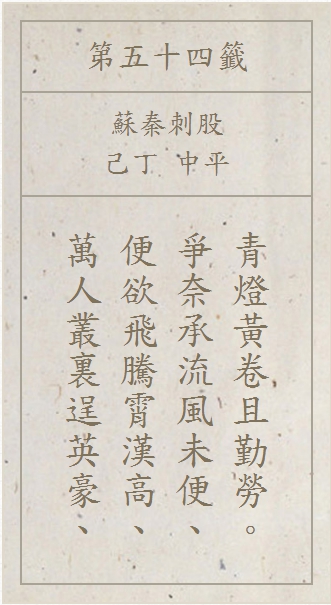 第五十四籤
蘇秦刺股
己丁 中平
萬人叢裏逞英豪、
便欲飛騰霄漢高、
爭奈承流風未便、
青燈黃卷且勤勞。